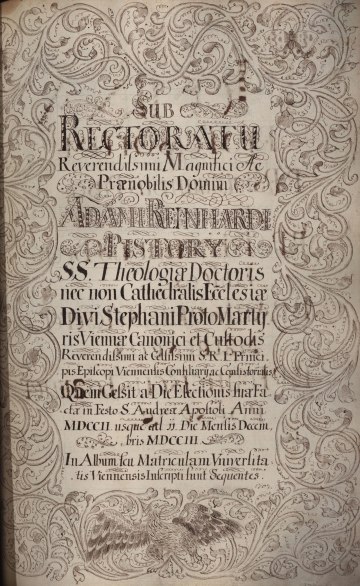 SUB
RECTORATU
Reverendissimi Magnifici Ac
Prænobilis Domini
ADAMI REINHARDI
PISTORY
S.S. Theologiæ Doctoris
nec non Cathedralis Ecclesiæ
Divi Stephani ProtoMarty
ris Viennæ Canonici et Custodis
Reverendissimi ac Celsissimi S.R.I. Princi
pis Episcopi Viennensis Consiliarij, ac Consistorialis
Quem Gessit a Die Electionis suæ Fa
cta in Festo S. Andreæ Apostoli Anni
MDCCII usque ad Die Mensis Decem
bris MDCCIII.
In Album seu Matriculam Vniversita
tis Viennensis Inscripti sunt Sequentes